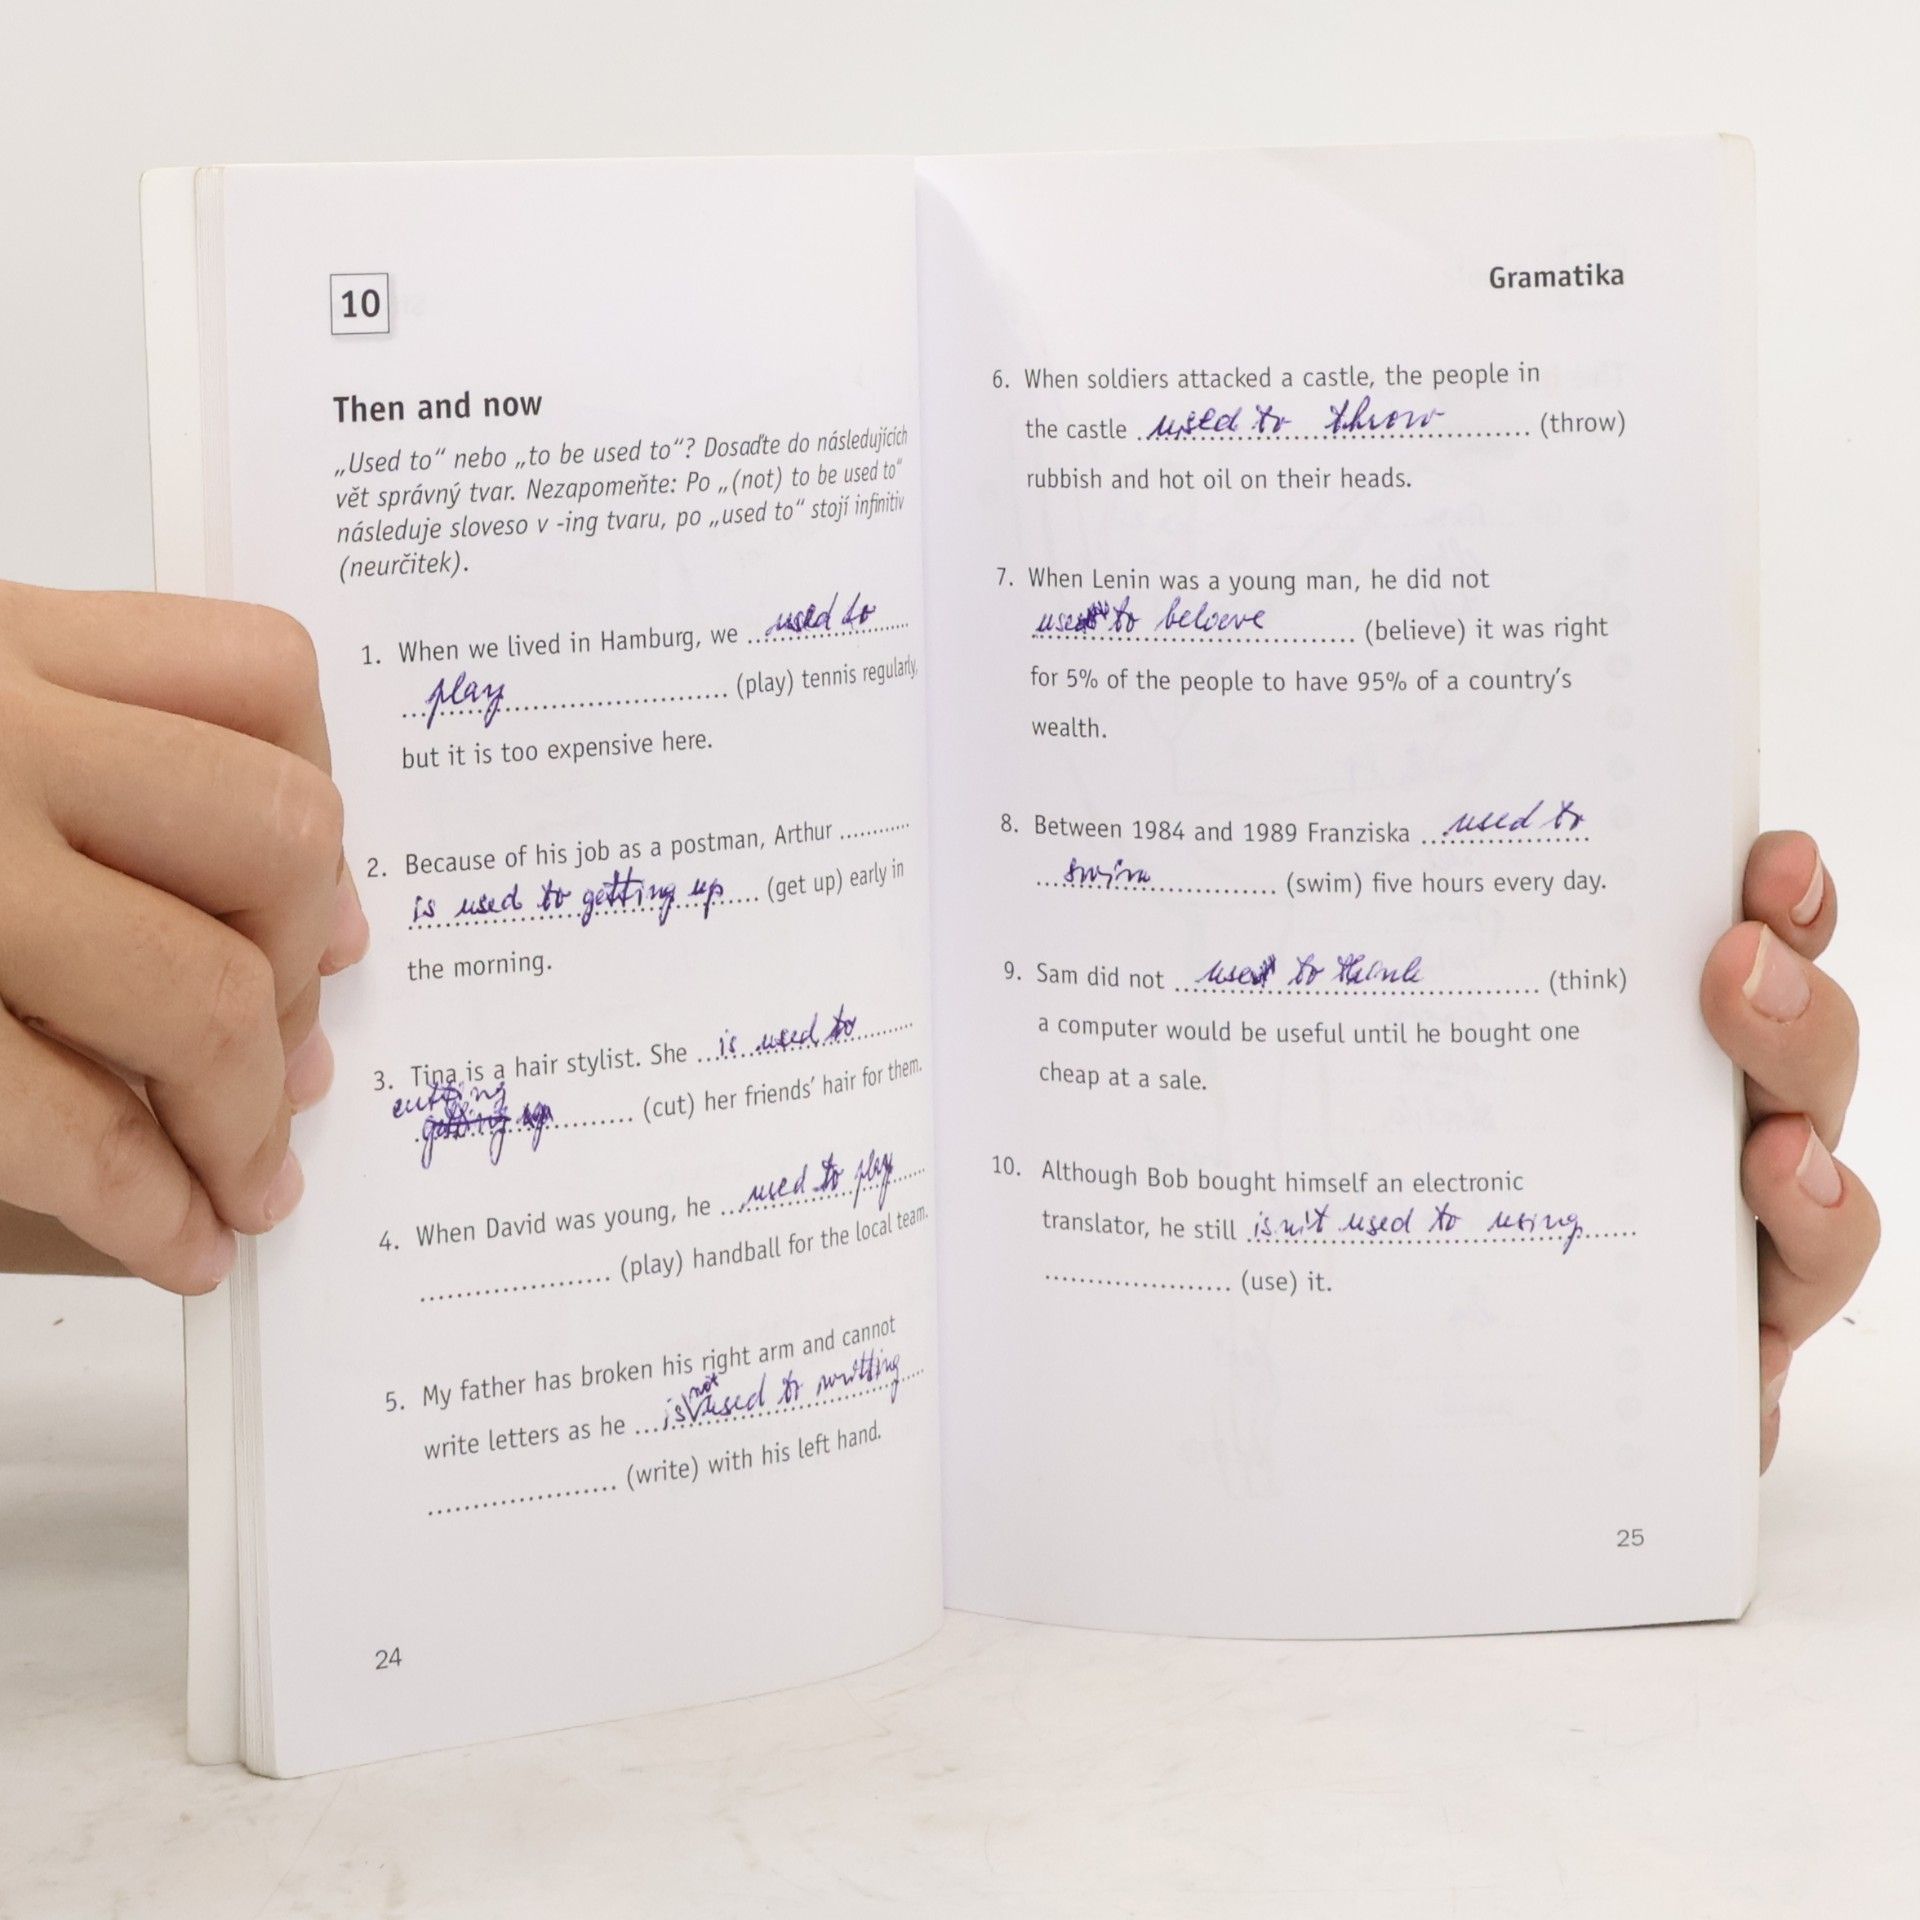 10
Then and now
„Used to“ nebo „to be used to“? Dosaďte do následujících
vět správný tvar. Nezapomeňte: Po „(not) to be used to“
následuje sloveso v -ing tvaru, po „used to“ stojí infinitiv
(neurčitek).
1. When we lived in Hamburg, we ... used to ...
... play ... (play) tennis regularly,
but it is too expensive here.
2. Because of his job as a postman, Arthur ...
is used to getting up ... (get up) early in
the morning.
3. Tina is a hair stylist. She ... is used to ...
cutting
getting up ... (cut) her friends’ hair for them.
4. When David was young, he ... used to play ...
... (play) handball for the local team.
5. My father has broken his right arm and cannot
write letters as he ... is not used to writting ...
... (write) with his left hand.
24
Gramatika
6. When soldiers attacked a castle, the people in
the castle ... used to throw ... (throw)
rubbish and hot oil on their heads.
7. When Lenin was a young man, he did not
use to beloeve ... (believe) it was right
for 5% of the people to have 95% of a country’s
wealth.
8. Between 1984 and 1989 Franziska ... used to
... swim ... (swim) five hours every day.
9. Sam did not ... use to think ... (think)
a computer would be useful until he bought one
cheap at a sale.
10. Although Bob bought himself an electronic
translator, he still isn't used to using ...
... (use) it.
25